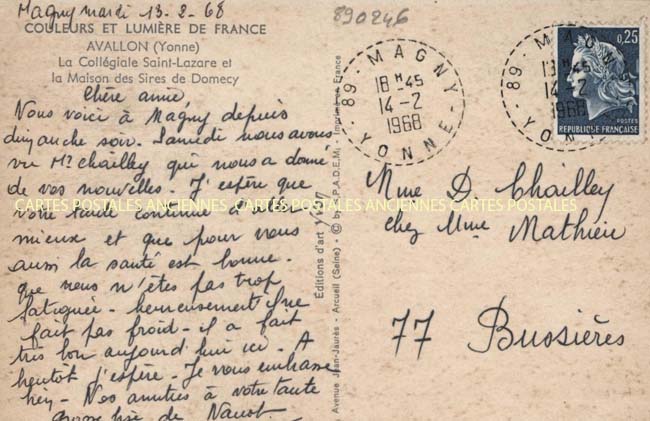 Magny mardi 13-2-68
COULEURS ET LUMIÈRE DE FRANCE
AVALLON (Yonne)
La Collégiale Saint-Lazare et
la Maison des Sires de Domecy
Chère amie
Nous voici à Magny depuis
dimanche soir. Samedi nous avons
vu Mr Chailley qui nous a donné
de vos nouvelles - J'espère que
votre tante continue à aller
mieux et que pour vous
aussi la santé est bonne -
que vous n'êtes pas trop
fatiguée - heureusement il ne
fait pas froid - il a fait
très bon aujourd'hui ici. A
bientôt j'espère - Je vous embrasse
Nos amitiés à votre tante
de
890246
Éditions d'art YVON
Avenue Jean-Jaurès - Arcueil (Seine) - © by S.P.A.D.E.M. - Imprimé en France
89 - MAGNY - YONNE
18 H 45
14-2
1968
89 - MAGNY - YONNE
14-2
1968
0,25
POSTES
REPUBLIQUE FRANÇAISE
Mme D. Chailley
chez Mme Mathieu
77 Bussières
CARTES POSTALES ANCIENNES CARTES POSTALES ANCIENNES CARTES POSTALES